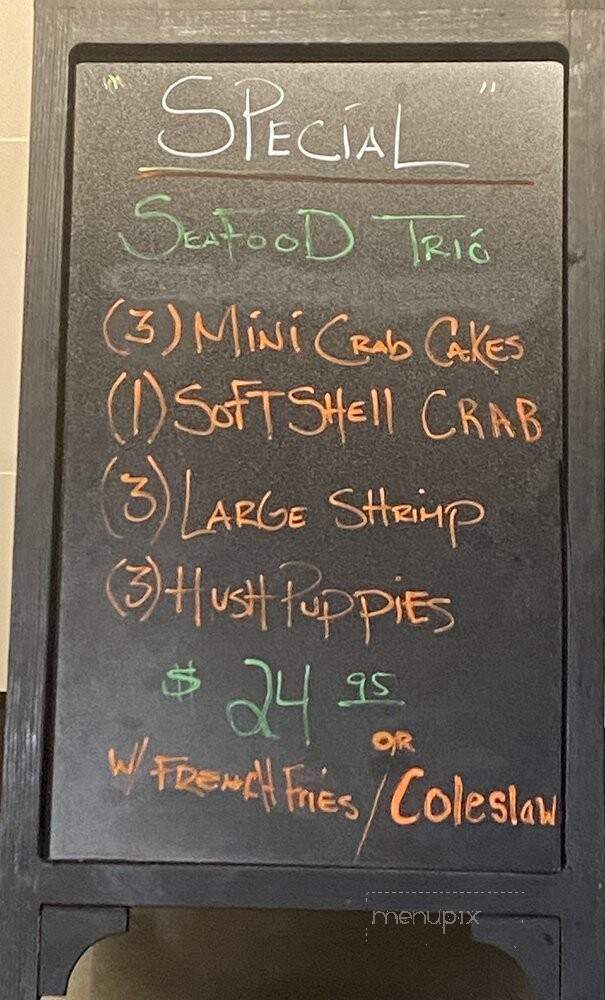 "SPECIAL"
SEAFOOD TRIO
(3) MINI CRAB CAKES
(1) SOFT SHELL CRAB
(3) LARGE SHRIMP
(3) HUSH PUPPIES
$ 24 95
OR
W/ FRENCH FRIES / Coleslaw
menupix